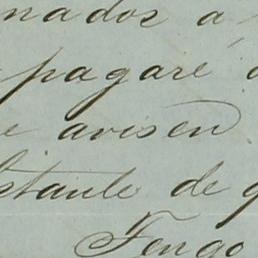 nados á
pagaré
e avisen
stante de q
Tengo